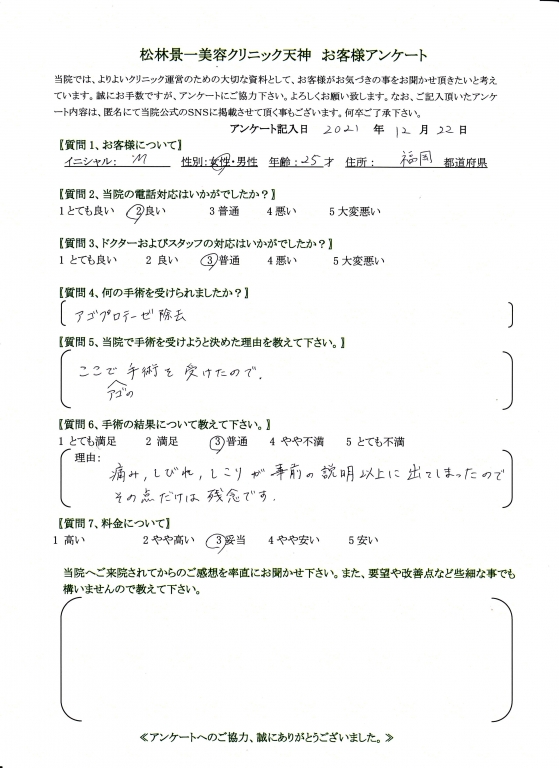 松林景一美容クリニック天神 お客様アンケート
当院では、よりよいクリニック運営のための大切な資料として、お客様がお気づきの事をお聞かせ頂きたいと考え
ています。誠にお手数ですが、アンケートにご協力下さい。よろしくお願い致します。なお、ご記入頂いたアンケ
ート内容は、匿名にて当院公式のSNSに掲載させて頂く事もございます。何卒ご了承下さい。
アンケート記入日 2021 年 12 月 22 日
【質問1、お客様について】
イニシャル: M 性別:女性・男性 年齢:25才 住所: 福岡 都道府県
【質問2、当院の電話対応はいかがでしたか?】
1とても良い 2良い 3普通 4悪い 5大変悪い
【質問3、ドクターおよびスタッフの対応はいかがでしたか?】
1 とても良い 2 良い 3普通 4悪い 5大変悪い
【質問4、何の手術を受けられましたか?】
アゴプロテーゼ除去
【質問5、当院で手術を受けようと決めた理由を教えて下さい。】
ここで手術を受けたので.
アゴの
【質問6、手術の結果について教えて下さい。】
1 とても満足 2 満足 3普通 4 やや不満 5 とても不満
理由:
痛み,しびれ,しこりが事前の説明以上に出てしまったので
その点だけは残念です.
【質問7、料金について】
1 高い 2やや高い 3妥当 4やや安い 5安い
当院へご来院されてからのご感想を率直にお聞かせ下さい。また、要望や改善点など些細な事でも
構いませんので教えて下さい。
≪アンケートへのご協力、誠にありがとうございました。≫